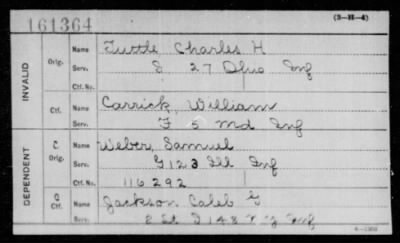 161364
(3-H-4)
INVALID
Orig.
Name Tuttle Charles H
Serv. 27 Ohio Inf
Ctf. No.
Ctf.
Name Carrick, William
Serv. F 5 Md Inf
DEPENDENT
C
Orig.
Name Weber, Samuel
Serv. G 123 Ill Inf
Ctf. No. 116292
C
Ctf.
Name Jackson Caleb G
Serv. 148 N Y Inf